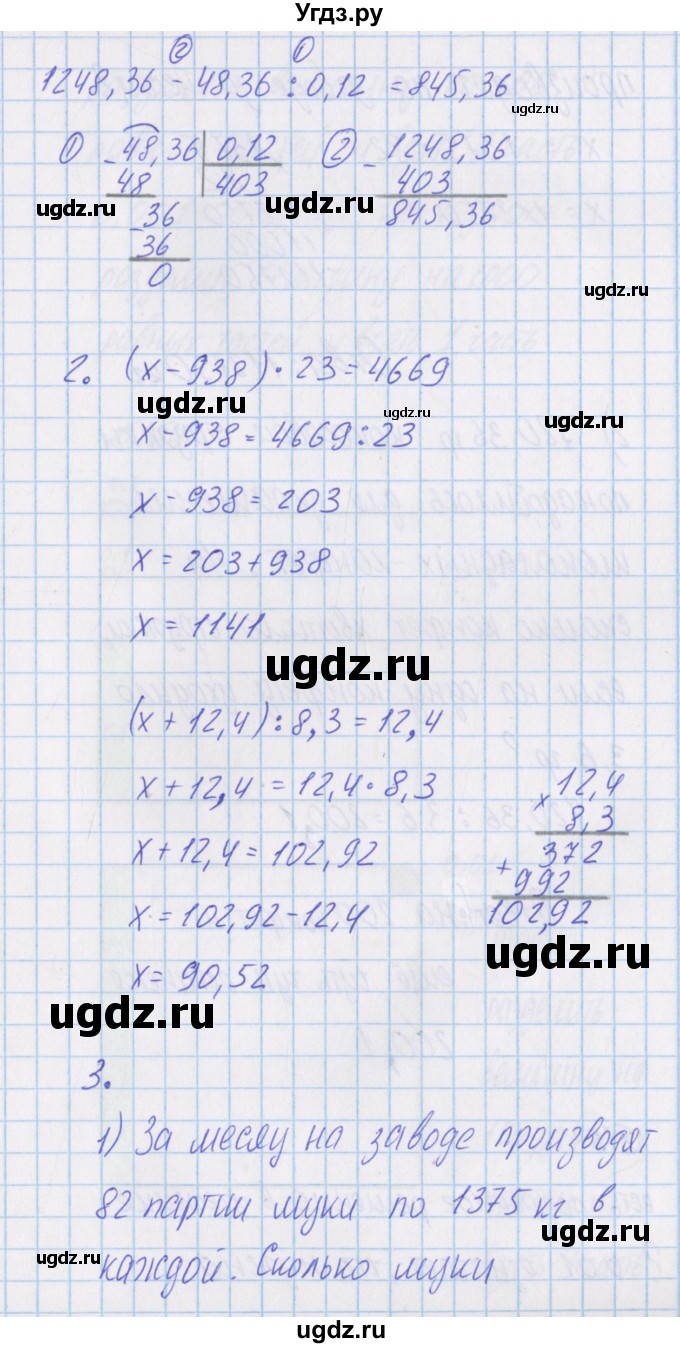 Угдз.ру
② ①
1248,36 - 48,36 : 0,12 = 845,36
ugdz.ru
① - 48,36 | 0,12 ② - 1248,36
48 403 403
ugdz.ru ugdz.ru
- 36 845,36
36
0
ugdz.ru
2. (x - 938) · 23 = 4669
ugdz.ru ugdz.ru ugdz.ru
x - 938 = 4669 : 23
x - 938 = 203
x = 203 + 938
x = 1141
ugdz.ru
(x + 12,4) : 8,3 = 12,4
x + 12,4 = 12,4 · 8,3 x 12,4
8,3
x + 12,4 = 102,92 372
+ 992
x = 102,92 - 12,4 102,92
ugdz.ru
x = 90,52
ugdz.ru
3.
1) За месяц на заводе производят
82 партии муки по 1375 кг в
ugdz.ru
ugdz.ru
каждой. Сколько муки
ugdz.ru